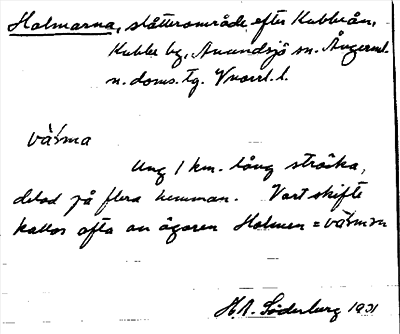 Holmarna, slåtterområde efter Kubbeån,
Kubbe by, Anundsjö sn. Ångerml.
n. doms. tg. Vnorrl. l.
Ung 1 km. lång sträcka,
delad på flera hemman. Vart skifte
kallas ofta av ägaren Holmen =
H.A. Söderberg